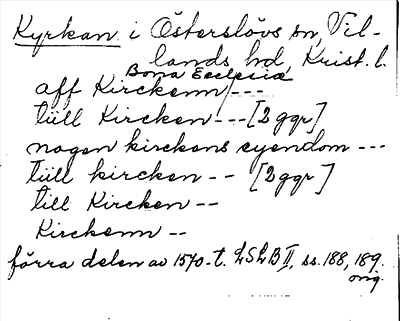 Kyrkan i Österslövs sn, Vil-
lands hd, Krist. l.
Bona Ecclesiæ
aff Kirckenn ---
tüll Kircken --- [2 ggr]
nogen kirckens eyendom ---
tüll kircken -- [2 ggr]
till Kircken --
Kirckenn --
förra delen av 1570-t. LSLB II, ss. 188, 189.
orig.